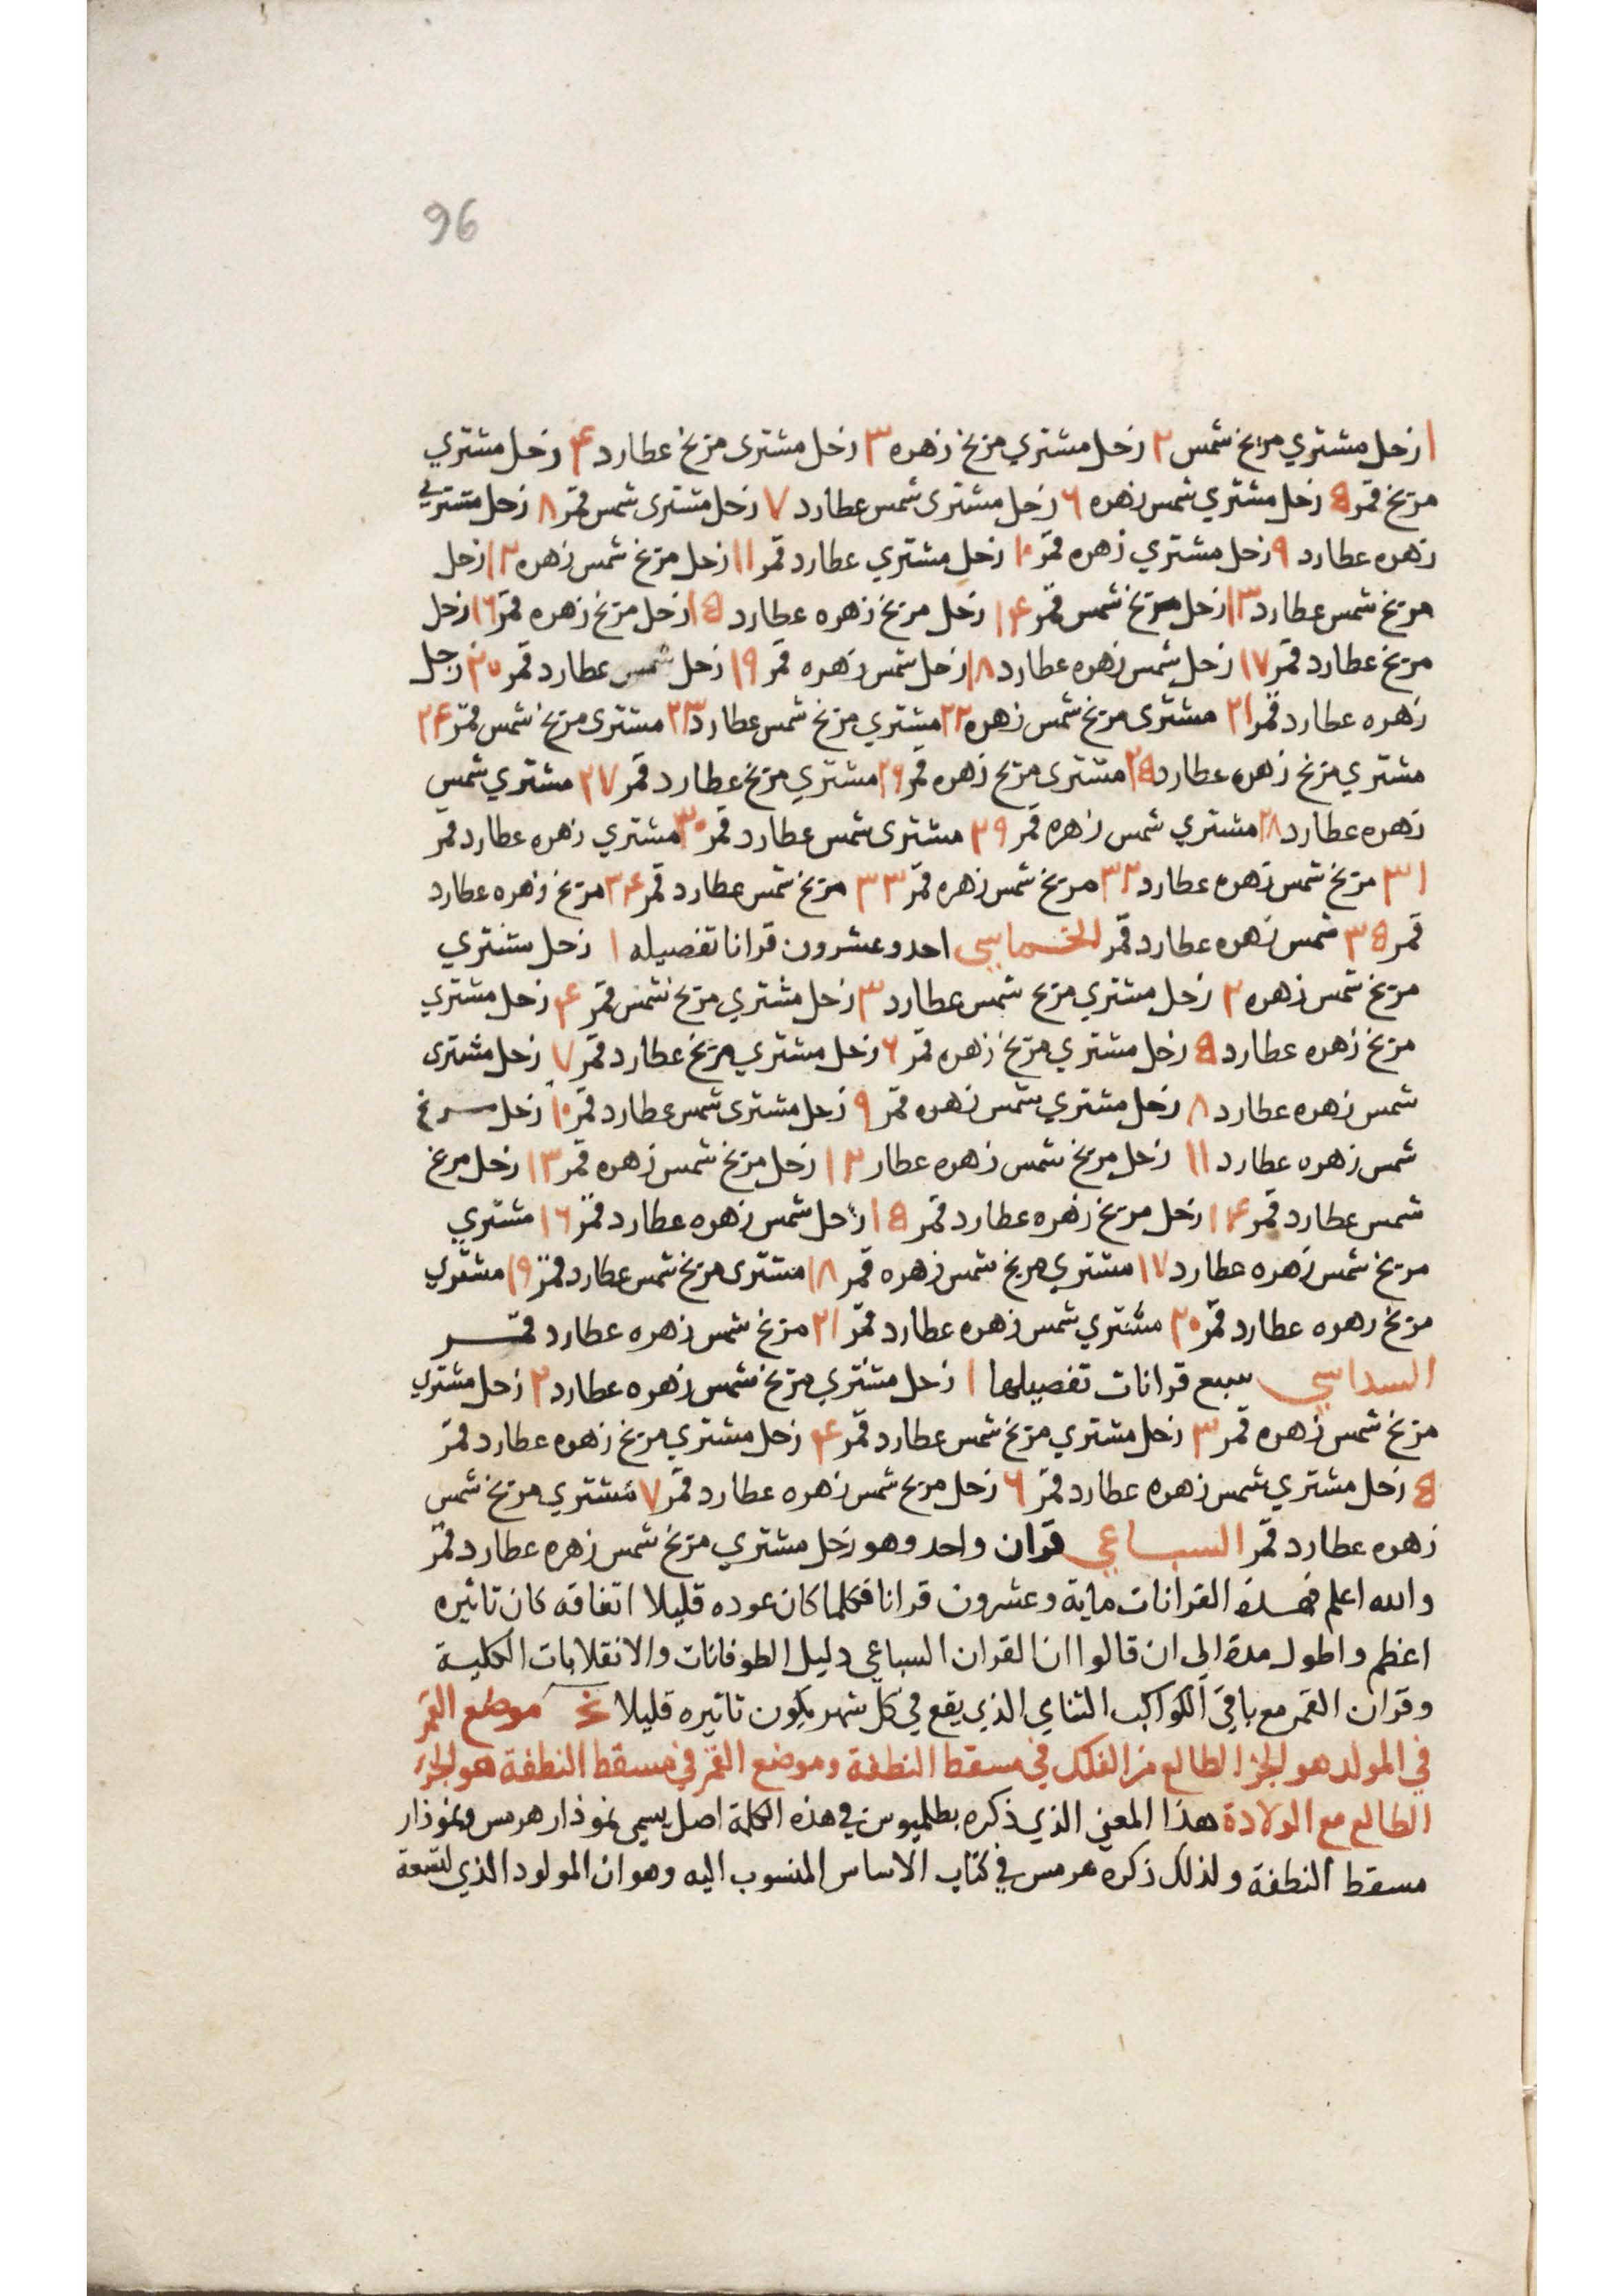 96
١ زحل مشتري مريخ شمس ٢ زحل مشتري مريخ زهره ٣ زحل مشترى مريخ عطارد ۴ زحل مشتري
مريخ قمر ٥ زحل مشتري شمس زهره ٦ زحل مشترى شمس عطارد ٧ زحل مشترى شمس قمر ٨ زحل مشتري
زهره عطارد ٩ زحل مشتري زهره قمر ١٠ زحل مشتري عطارد قمر ١١ زحل مريخ شمس زهره ١٢ زحل
مريخ شمس عطارد ١٣ زحل مريخ شمس قمر ١۴ زحل مريخ زهره عطارد ١٥ زحل مريخ زهره قمر ١٦ زحل
مريخ عطارد قمر ١٧ زحل شمس زهره عطارد ١٨ زحل شمس زهره قمر ١٩ زحل شمس عطارد قمر ٢٠ زحل
زهره عطارد قمر ٢١ مشترى مريخ شمس زهره ٢٢ مشتري مريخ شمس عطارد ٢٣ مشترى مريخ شمس قمر ٢۴
مشتري مريخ زهره عطارد ٢٥ مشترى مريخ زهره قمر ٢٦ مشتري مريخ عطارد قمر ٢٧ مشتري شمس
زهره عطارد ٢٨ مشتري شمس زهره قمر ٢٩ مشترى شمس عطارد قمر ٣٠ مشتري زهره عطارد قمر
٣١ مريخ شمس زهره عطارد ٣٢ مريخ شمس زهره قمر ٣٣ مريخ شمس عطارد قمر ٣۴ مريخ زهره عطارد
قمر ٣٥ شمس زهره عطارد قمر الخماسي احد وعشرون قرانا تفصيله ١ زحل مشتري
مريخ شمس زهره ٢ زحل مشتري مريخ شمس عطارد ٣ زحل مشتري مريخ شمس قمر ۴ زحل مشتري
مريخ زهره عطارد ٥ زحل مشتري مريخ زهره قمر ٦ زحل مشتري مريخ عطارد قمر ٧ زحل مشترى
شمس زهره عطارد ٨ زحل مشتري شمس زهره قمر ٩ زحل مشترى شمس عطارد قمر ١٠ زحل مريخ
شمس زهره عطارد ١١ زحل مريخ شمس زهره عطار ١٢ زحل مريخ شمس زهره قمر ١٣ زحل مريخ
شمس عطارد قمر ١۴ زحل مريخ زهره عطارد قمر ١٥ زحل شمس زهره عطارد قمر ١٦ مشتري
مريخ شمس زهره عطارد ١٧ مشتري مريخ شمس زهره قمر ١٨ مشترى مريخ شمس عطارد قمر ١٩ مشتري
مريخ زهره عطارد قمر ٢٠ مشتري شمس زهره عطارد قمر ٢١ مريخ شمس زهره عطارد قمر
السداسي سبع قرانات تفصيلها ١ زحل مشتري مريخ شمس زهره عطارد ٢ زحل مشتري
مريخ شمس زهره قمر ٣ زحل مشتري مريخ شمس عطارد قمر ۴ زحل مشتري مريخ زهره عطارد قمر
٥ زحل مشتري شمس زهره عطارد قمر ٦ زحل مريخ شمس زهره عطارد قمر ٧ مشتري مريخ شمس
زهره عطارد قمر السباعي قران واحد وهو زحل مشتري مريخ شمس زهره عطارد قمر
والله اعلم فهذه القرانات ماية وعشرون قرانا فكلما كان عوده قليلا اتفاقه كان تاثيره
اعظم واطول مدة الى ان قالوا ان القران السباعي دليل الطوفانات والانقلابات الكلية
وقران القمر مع باقي الكواكب الثناي الذي يقع في كل شهر يكون تاثيره قليلا موضع القمر
في المولد هو الجزا الطالع من الفلك في مسقط النطفة وموضع القمر في مسقط النطفة هو الجزء
الطالع مع الولادة هذا المعنى الذي ذكره بطلميوس في هذه الكلمة اصل يسمى نموذار هرمس ونموذار
مسقط النطفة ولذلك ذكره هرمس في كتاب الاساس المنسوب اليه وهو ان المولود الذي لتسعة